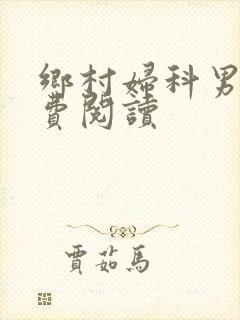 鄉村婦科男
費閱讀
賈茹馬